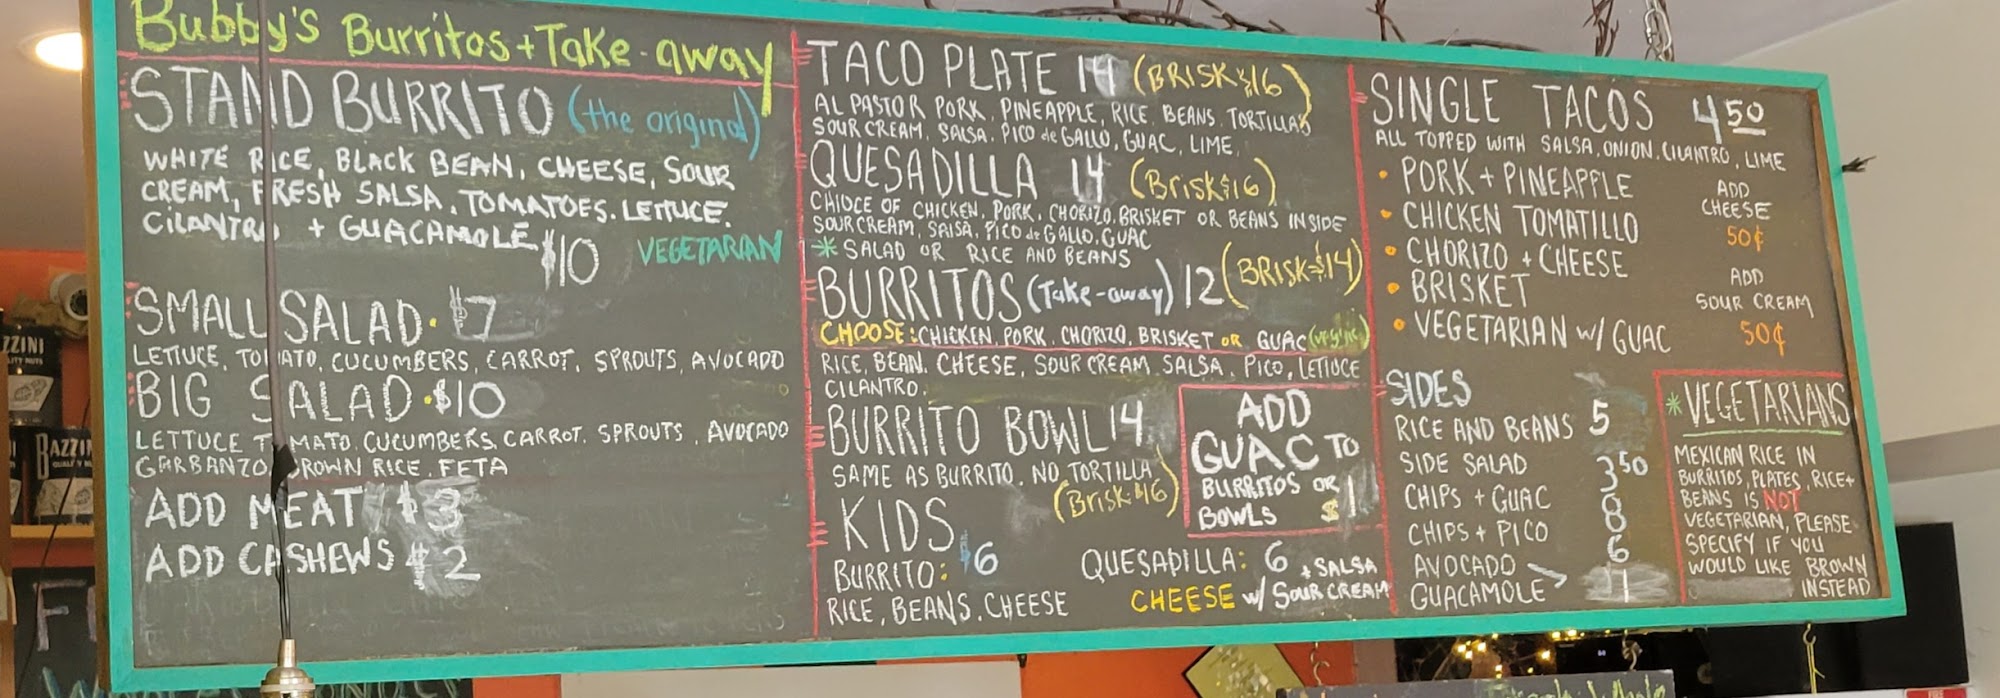 Bubby's Burritos + Take-away
STAND BURRITO (the original)
WHITE RICE, BLACK BEAN, CHEESE, SOUR
CREAM, FRESH SALSA, TOMATOES. LETTUCE.
CILANTRO + GUACAMOLE $10 VEGETARIAN
SMALL SALAD $7
LETTUCE, TOMATO, CUCUMBERS, CARROT, SPROUTS, AVOCADO
BIG SALAD $10
LETTUCE TOMATO. CUCUMBERS, CARROT. SPROUTS, AVOCADO
GARBANZO, BROWN RICE, FETA
ADD MEAT $3
ADD CASHEWS $2
TACO PLATE 14 (BRISK $16)
AL PASTOR PORK, PINEAPPLE, RICE, BEANS, TORTILLAS
SOUR CREAM, SALSA, PICO de GALLO, GUAC, LIME,
QUESADILLA 14 (Brisk $16)
CHIOCE OF CHICKEN, PORK, CHORIZO, BRISKET OR BEANS INSIDE
SOUR CREAM, SALSA, PICO de GALLO, GUAC
* SALAD OR RICE AND BEANS
BURRITOS (Take-away) 12 (BRISK $14)
CHOOSE: CHICKEN, PORK, CHORIZO, BRISKET OR GUAC
RICE, BEAN, CHEESE, SOUR CREAM, SALSA, PICO, LETTUCE
CILANTRO.
BURRITO BOWL 14
SAME AS BURRITO. NO TORTILLA
(Brisk $16)
ADD
GUAC TO
BURRITOS OR
BOWLS $1
KIDS
BURRITO: $6
RICE, BEANS, CHEESE
QUESADILLA: 6 + SALSA
CHEESE w/ SOUR CREAM
SINGLE TACOS 4 50
ALL TOPPED WITH SALSA, ONION, CILANTRO, LIME
• PORK + PINEAPPLE
• CHICKEN TOMATILLO
• CHORIZO + CHEESE
• BRISKET
• VEGETARIAN w/ GUAC
ADD
CHEESE
50¢
ADD
SOUR CREAM
50¢
SIDES
RICE AND BEANS 5
SIDE SALAD 3 50
CHIPS + GUAC 8
CHIPS + PICO 6
AVOCADO
GUACAMOLE > 1
* VEGETARIANS
MEXICAN RICE IN
BURRITOS, PLATES, RICE+
BEANS IS NOT
VEGETARIAN, PLEASE
SPECIFY IF YOU
WOULD LIKE BROWN
INSTEAD
ZZINI
BAZZIN